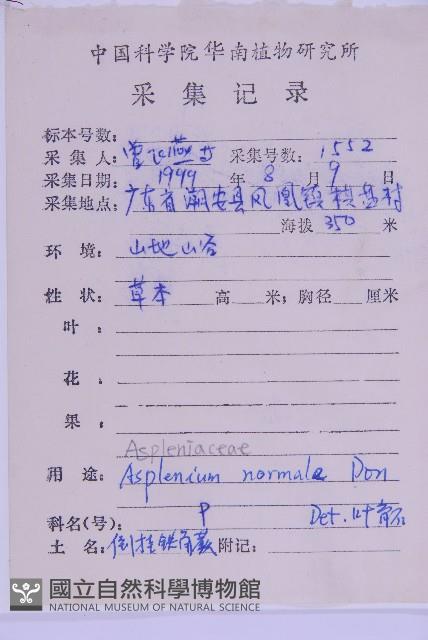 中国科学院华南植物研究所
采集记录
标本号数:
采集人: 曾 采集号数: 1552
采集日期: 1999 年 8 月 9 日
采集地点: 广东省潮安县凤凰镇 村
海拨 350 米
环境: 山地山谷
性状: 草本 高 米; 胸径 厘米
叶:
花:
果:
Aspleniaceae
用途: Asplenium normale Don
科名(号): P Det. 叶
土名: 倒挂铁角蕨 附记:
國立自然科學博物館
NATIONAL MUSEUM OF NATURAL SCIENCE